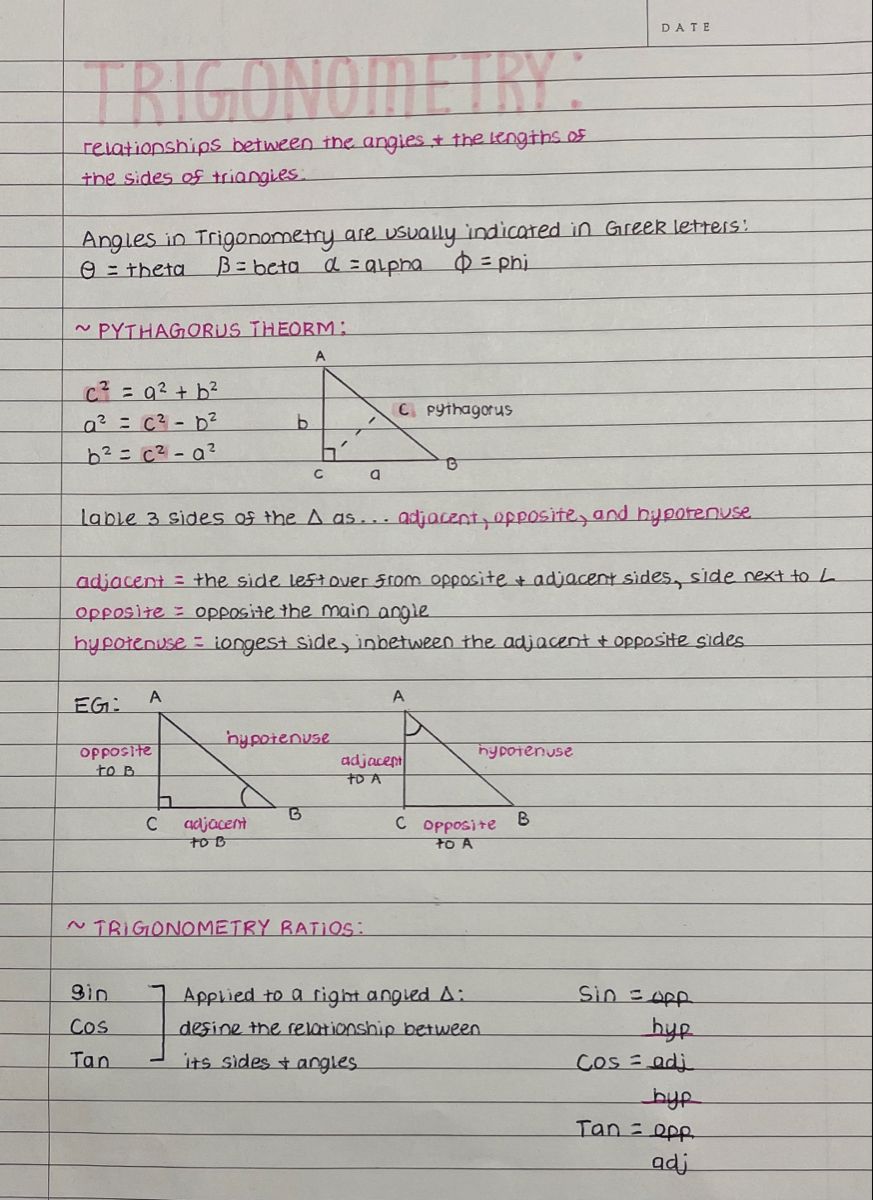 DATE
TRIGONOMETRY:
relationships between the angles + the lengths of
the sides of triangles.
Angles in Trigonometry are usually indicated in Greek letters:
θ = theta β = beta α = alpha Φ = phi
~ PYTHAGORUS THEORM:
c² = a² + b²
a² = c² - b²
b² = c² - a²
A
b
C pythagorus
C
a
B
lable 3 sides of the Δ as... adjacent, opposite, and hypotenuse
adjacent = the side left over from opposite + adjacent sides, side next to ∠
opposite = opposite the main angle
hypotenuse = longest side, inbetween the adjacent + opposite sides
EG:
A
opposite
to B
hypotenuse
C
adjacent
to B
B
A
adjacent
to A
hypotenuse
C
opposite
to A
B
~ TRIGONOMETRY RATIOS:
Sin
Cos
Tan
Applied to a right angled Δ:
define the relationship between
its sides + angles
Sin = opp
hyp
Cos = adj
hyp
Tan = opp
adj